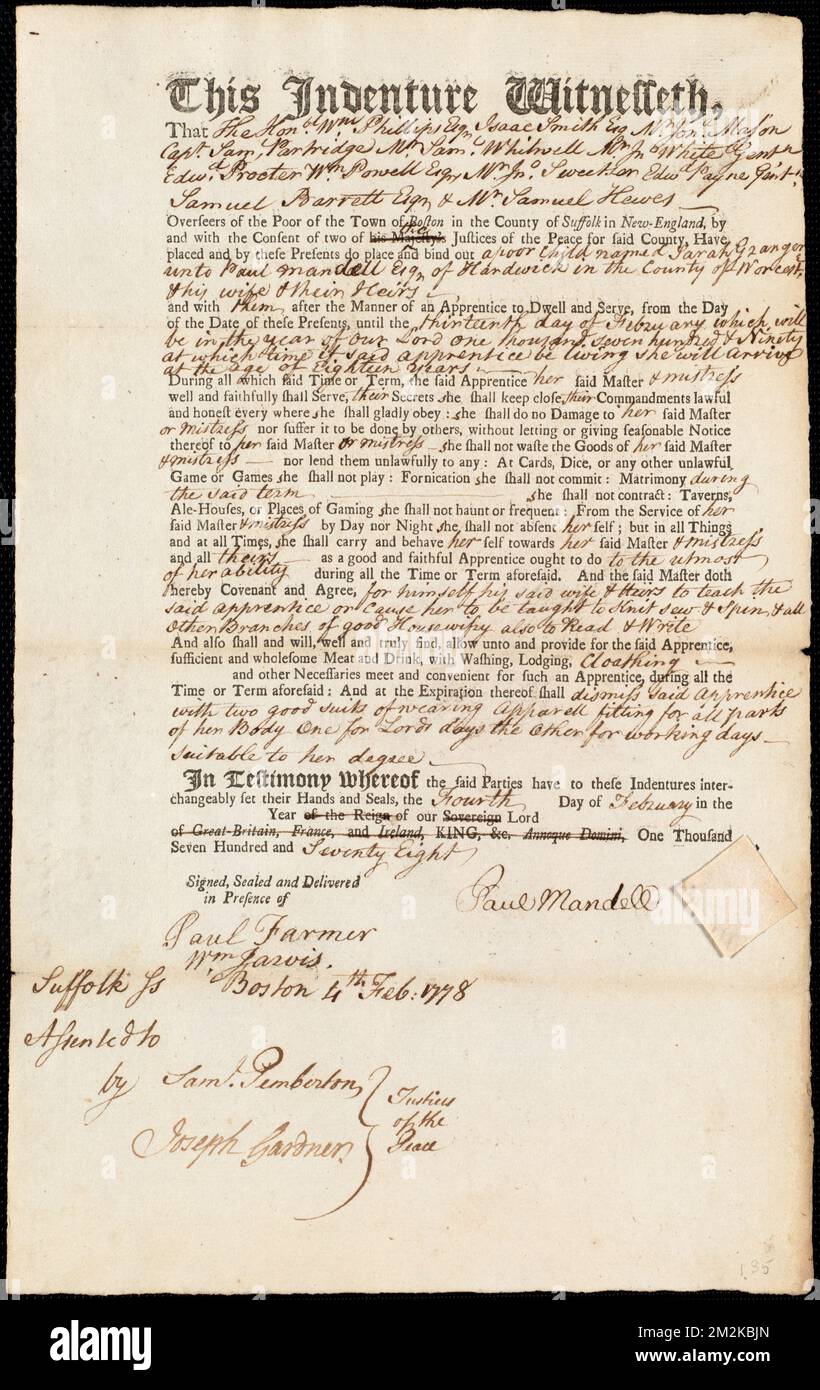 This Indenture Witnesseth,
That The Honble Wm Phillips Esqr, Isaac Smith Esq Mr Jona Mason
Capt Saml Partridge Mr Saml Whitwell Mr Jno White Gentn
Edwd Procter Wm Powell Esqr, Mr Jno Sweetser Edwd Payne Gentn
Samuel Barrett Esqr & Mr Samuel Hewes
Overseers of the Poor of the Town of Boston in the County of Suffolk in New-England, by
and with the Consent of two of his Majesty's the Justices of the Peace for said County, Have
placed and by these Presents do place and bind out a poor Child named Sarah Granger
unto Paul Mandell Esqr of Hardwick in the County of Worcestr
& his wife & their Heirs
and with them after the Manner of an Apprentice to Dwell and Serve, from the Day
of the Date of these Presents, until the thirteenth day of February which will
be in the year of our Lord one thousand seven hundred & Ninety
at which time if said apprentice be living she will arrive
at the age of Eighteen years
During all which said Time or Term, the said Apprentice her said Master & mistress
well and faithfully shall Serve, their Secrets she shall keep close, their Commandments lawful
and honest every where she shall gladly obey: she shall do no Damage to her said Master
or mistress nor suffer it to be done by others, without letting or giving seasonable Notice
thereof to her said Master or mistress she shall not waste the Goods of her said Master
& mistress nor lend them unlawfully to any: At Cards, Dice, or any other unlawful
Game or Games she shall not play: Fornication she shall not commit: Matrimony during
the said term she shall not contract: Taverns,
Ale-Houses, or Places of Gaming she shall not haunt or frequent: From the Service of her
said Master & mistress by Day nor Night she shall not absent her self; but in all Things
and at all Times, she shall carry and behave her self towards her said Master & mistress
and all theirs as a good and faithful Apprentice ought to do to the utmost
of her ability during all the Time or Term aforesaid. And the said Master doth
hereby Covenant and Agree, for himself his said wife & Heirs to teach the
said apprentice or cause her to be taught to Knit sew & Spin, & all
Other Branches of good Housewifry also to Read & Write
And also shall and will, well and truly find, allow unto and provide for the said Apprentice,
sufficient and wholesome Meat and Drink, with Washing, Lodging, Cloathing
and other Necessaries meet and convenient for such an Apprentice, during all the
Time or Term aforesaid: And at the Expiration thereof shall dismiss said Apprentice
with two good suits of wearing Apparell fitting for all parts
of her Body One for Lords days the Other for working days
suitable to her degree
In Testimony whereof the said Parties have to these Indentures inter-
changeably set their Hands and Seals, the Fourth Day of February in the
Year of the Reign of our Sovereign Lord
of Great-Britain, France, and Ireland, KING, &c. Annoque Domini, One Thousand
Seven Hundred and Seventy Eight
Signed, Sealed and Delivered
in Presence of
Paul Mandell
Paul Farmer
Wm Jarvis.
Suffolk Ss Boston 4th Feb: 1778
Assented to
by Saml Pemberton
Joseph Gardner
Justices
of the
Peace
135
alamy
Image ID: 2M2KBJN
www.alamy.com